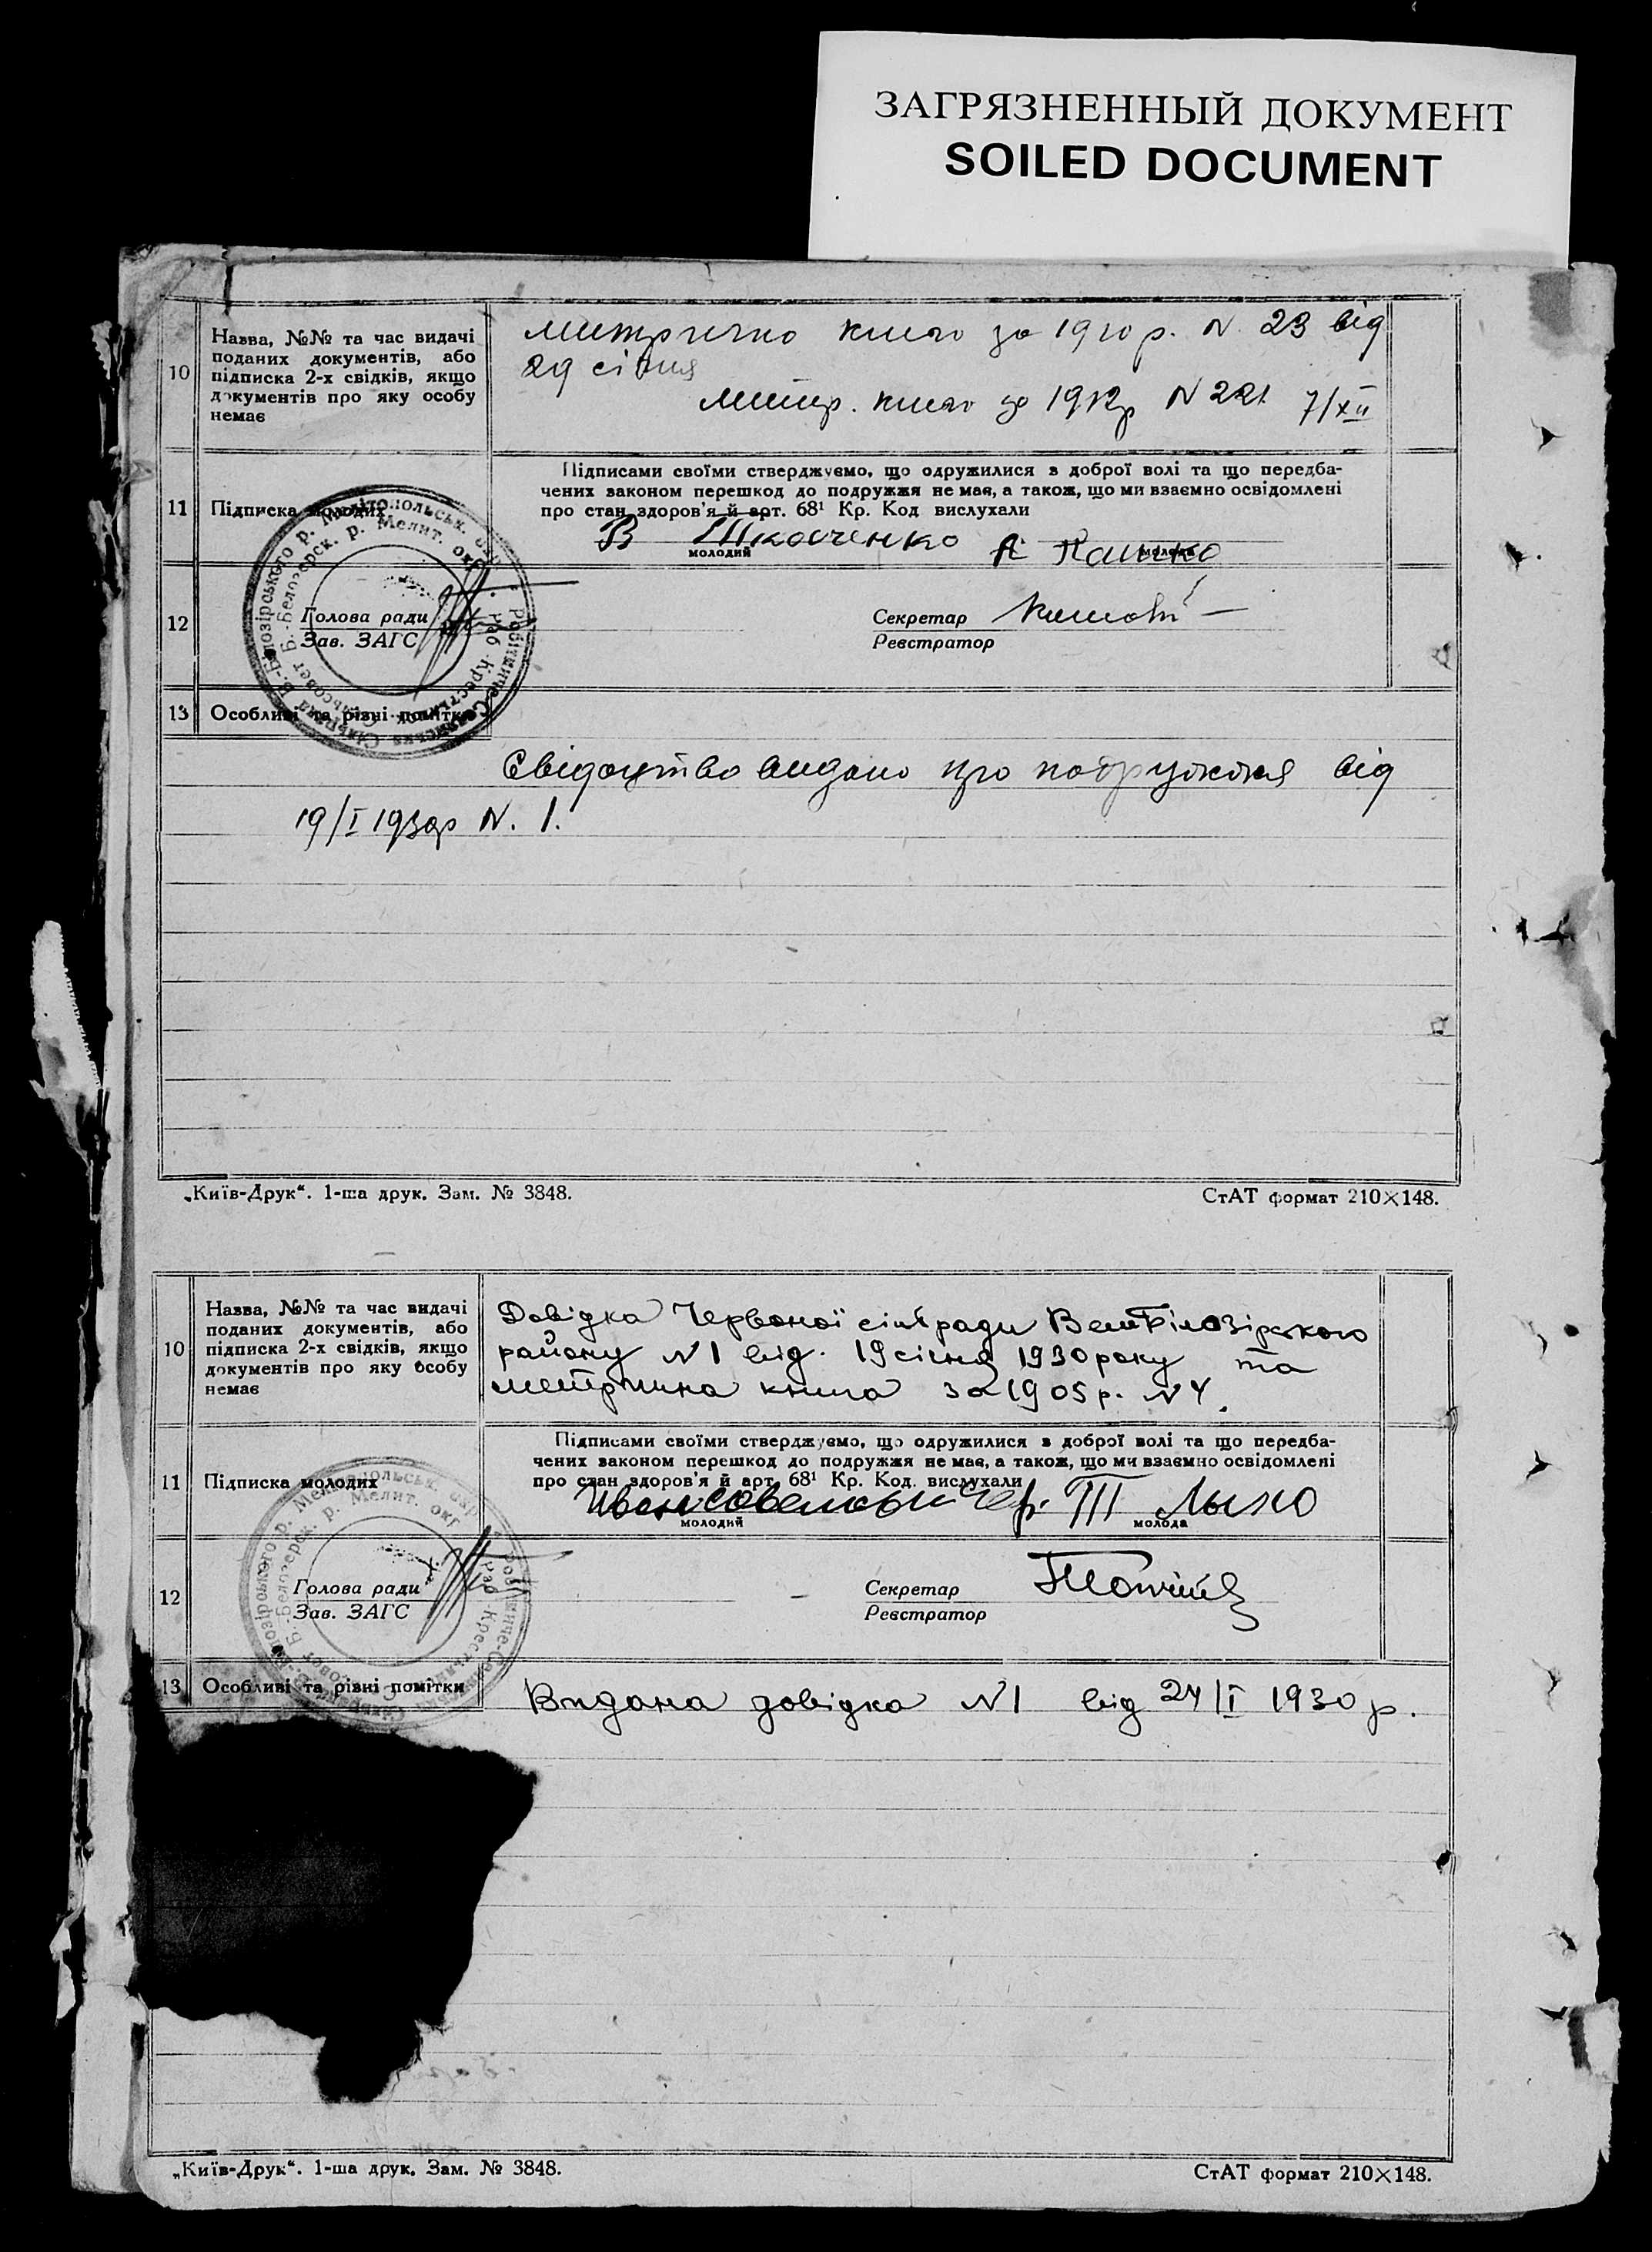 ЗАГРЯЗНЕННЫЙ ДОКУМЕНТ
SOILED DOCUMENT
10
Назва, №№ та час видачі
поданих документів, або
підписка 2-х свідків, якщо
документів про яку особу
немає
за 1910 р. N. 23 від
29 січня
за 1912р N 221 7/XII
11
Підписка молодих
Підписами своїми стверджуємо, що одружилися з доброї волі та що передба-
чених законом перешкод до подружжя не має, а також, що ми взаємно освідомлені
про стан здоров'я й арт. 68¹ Кр. Код вислухали
В
молодий
А
молода
12
Голова ради
Зав. ЗАГС
Секретар
Реєстратор
13
Особливі та різні помітки
Свідоцтво видано про від
19/I 1930р N. 1.
„Київ-Друк“. 1-ша друк. Зам. № 3848.
СтАТ формат 210×148.
10
Назва, №№ та час видачі
поданих документів, або
підписка 2-х свідків, якщо
документів про яку особу
немає
Довідка Червоної сільради
району N1 від. 19 січня 1930 року та
метрична книга за 1905 р. N 4.
11
Підписка молодих
Підписами своїми стверджуємо, що одружилися з доброї волі та що передба-
чених законом перешкод до подружжя не має, а також, що ми взаємно освідомлені
про стан здоров'я й арт. 68¹ Кр. Код. вислухали
молодий
молода
12
Голова ради
Зав. ЗАГС
Секретар
Реєстратор
13
Особливі та різні помітки
Видана довідка N1 від 24/I 1930 р.
„Київ-Друк“. 1-ша друк. Зам. № 3848.
СтАТ формат 210×148.